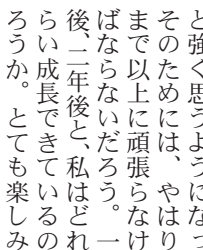 と強く思うようになっ
そのためには、やはり
まで以上に頑張らなけ
ばならないだろう。一
後、二年後と、私はどれ
らい成長できているの
ろうか。とても楽しみ